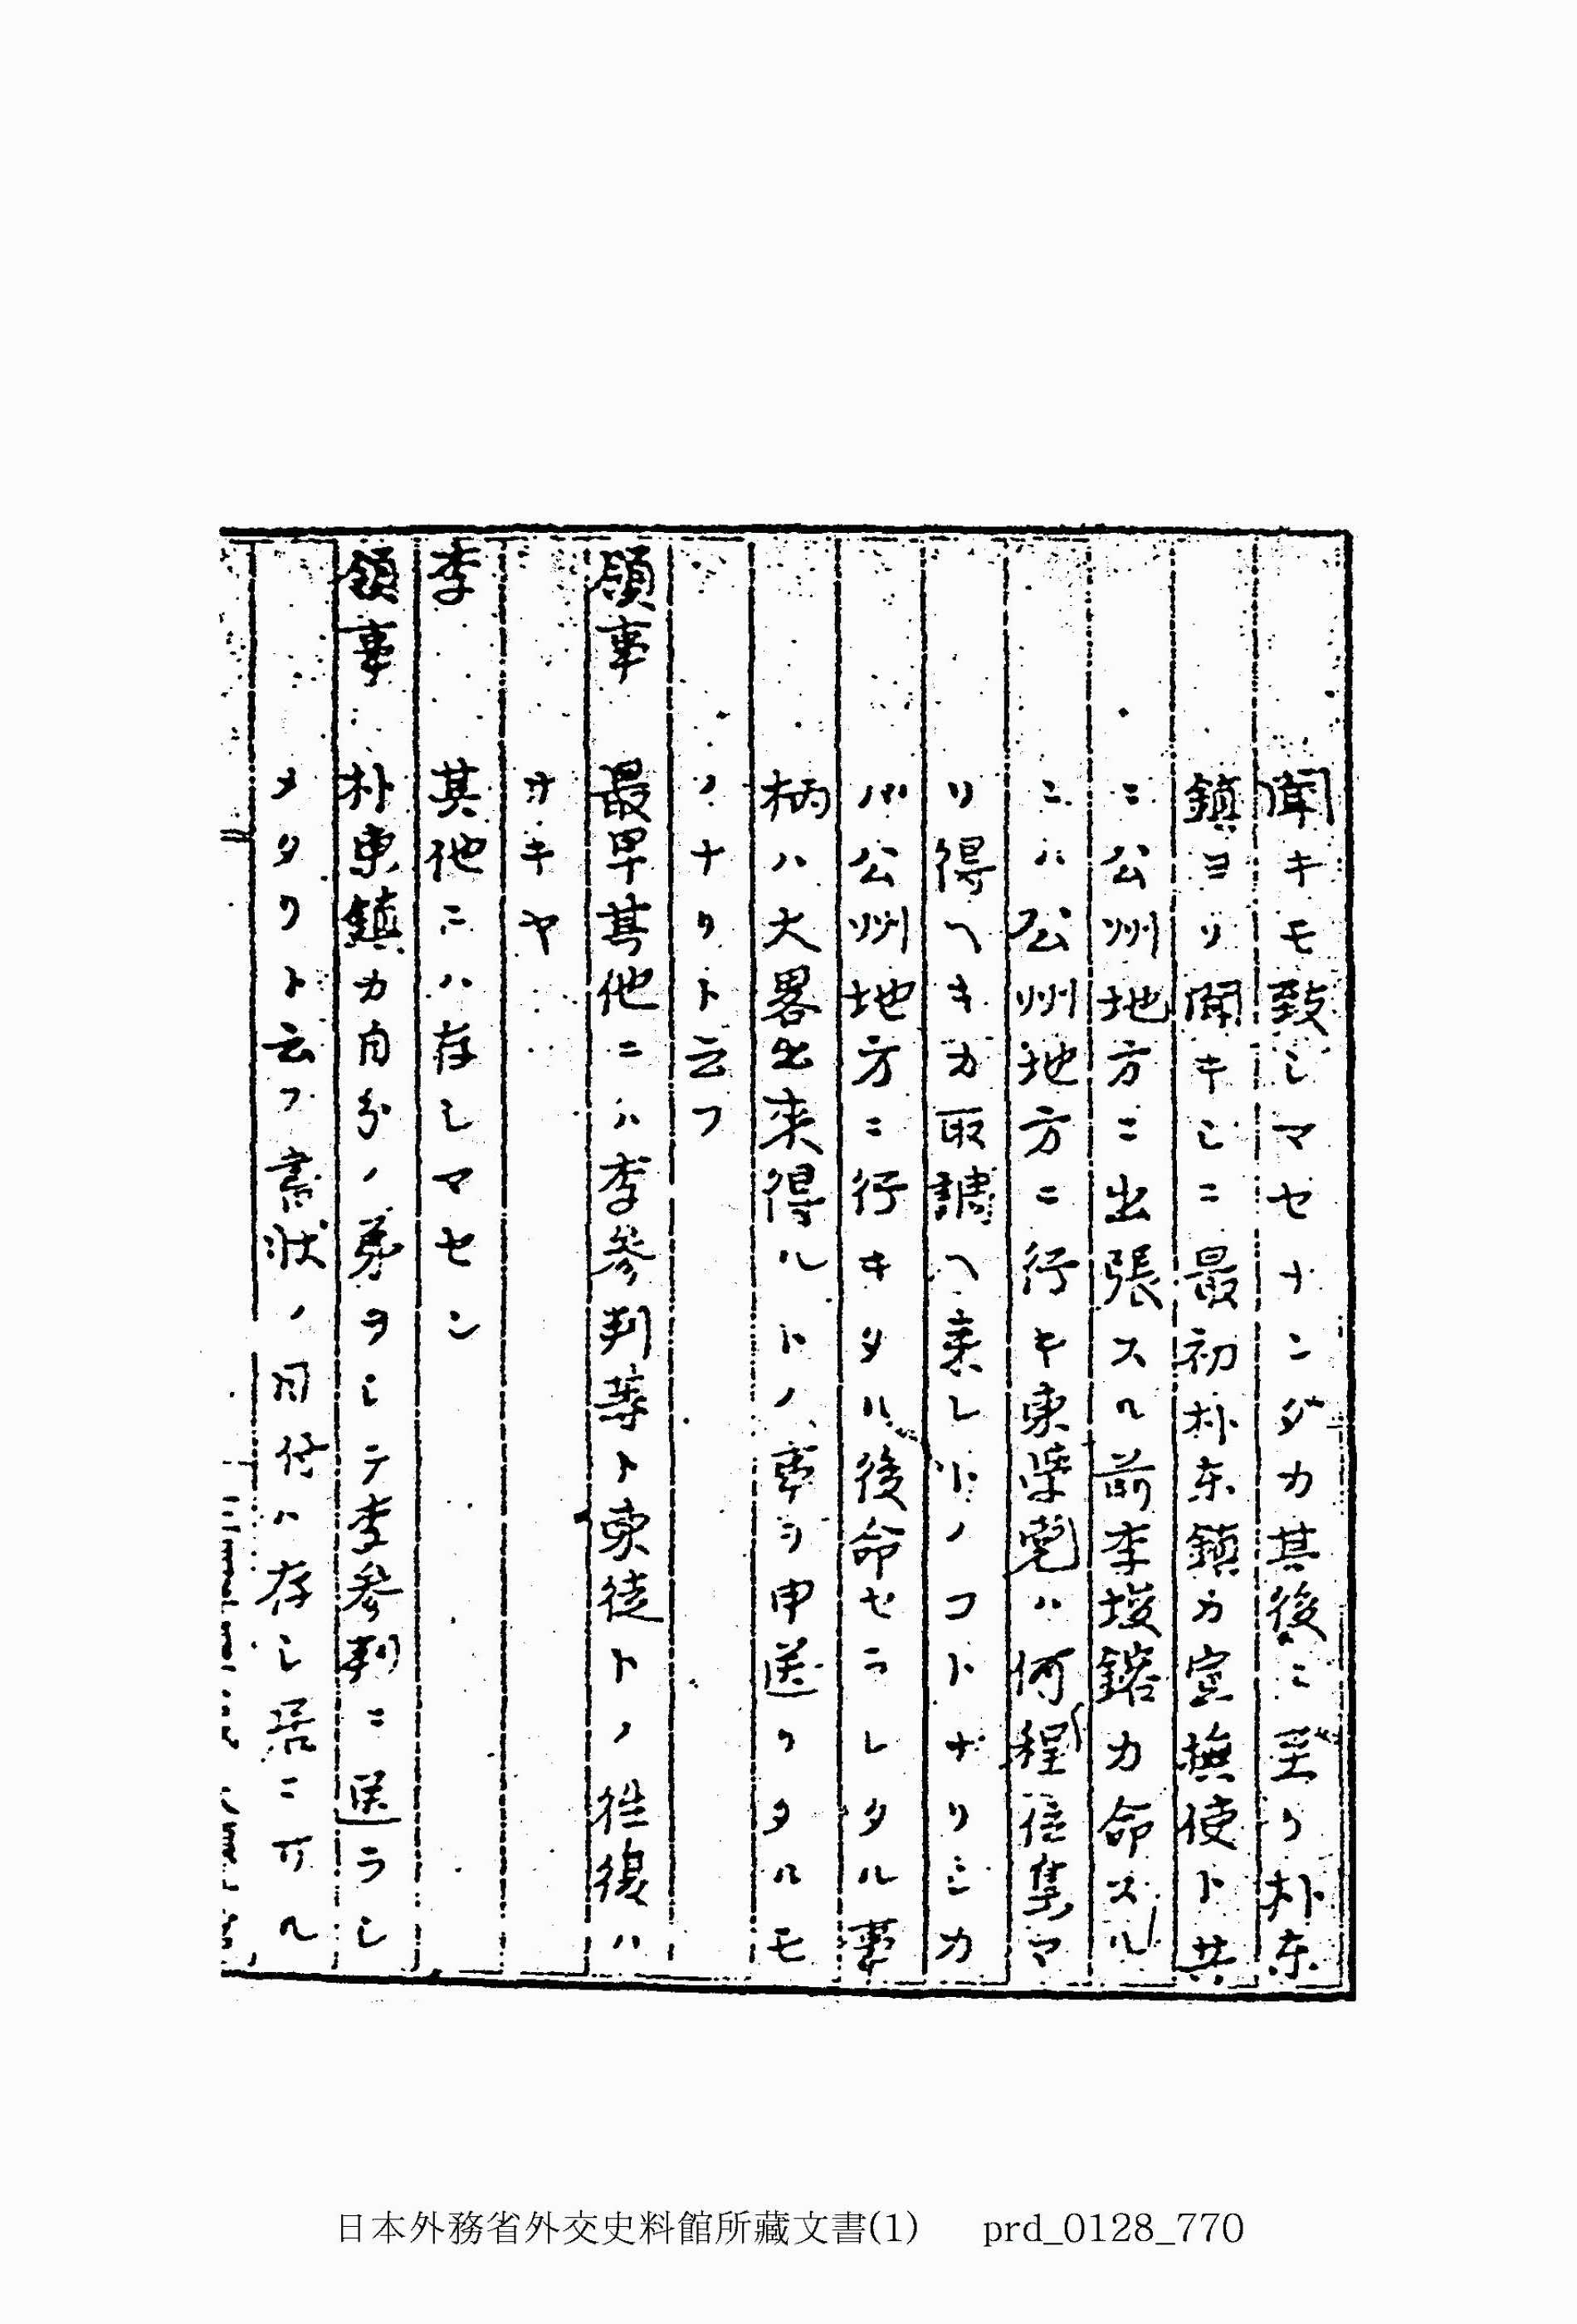 聞キモ致シマセナンダカ其後ニ至リ朴东
鎮ヨリ聞キシニ最初朴东鎮カ宣撫使ト共
ニ公州地方ニ出張スル前李埈鎔カ命スル
ニハ公州地方ニ行キ東学党ハ何程位集マ
リ得ヘキカ取調ヘ来レトノコトナリシカ
バ公州地方ニ行キタル後命セラレタル事
柄ハ大畧出来得ルトノ事ヲ申送リタルモ
ノナリト云フ
領事 最早其他ニハ李参判等ト東徒トノ往復ハ
ナキヤ
李 其他ニハ存シマセン
領事 朴東鎮カ自分ノ弟ヲシテ李参判ニ送ラシ
メタリト云フ書状ノ日付ハ存シ居ニサル
日本外務省外交史料館所藏文書(1) prd_0128_770